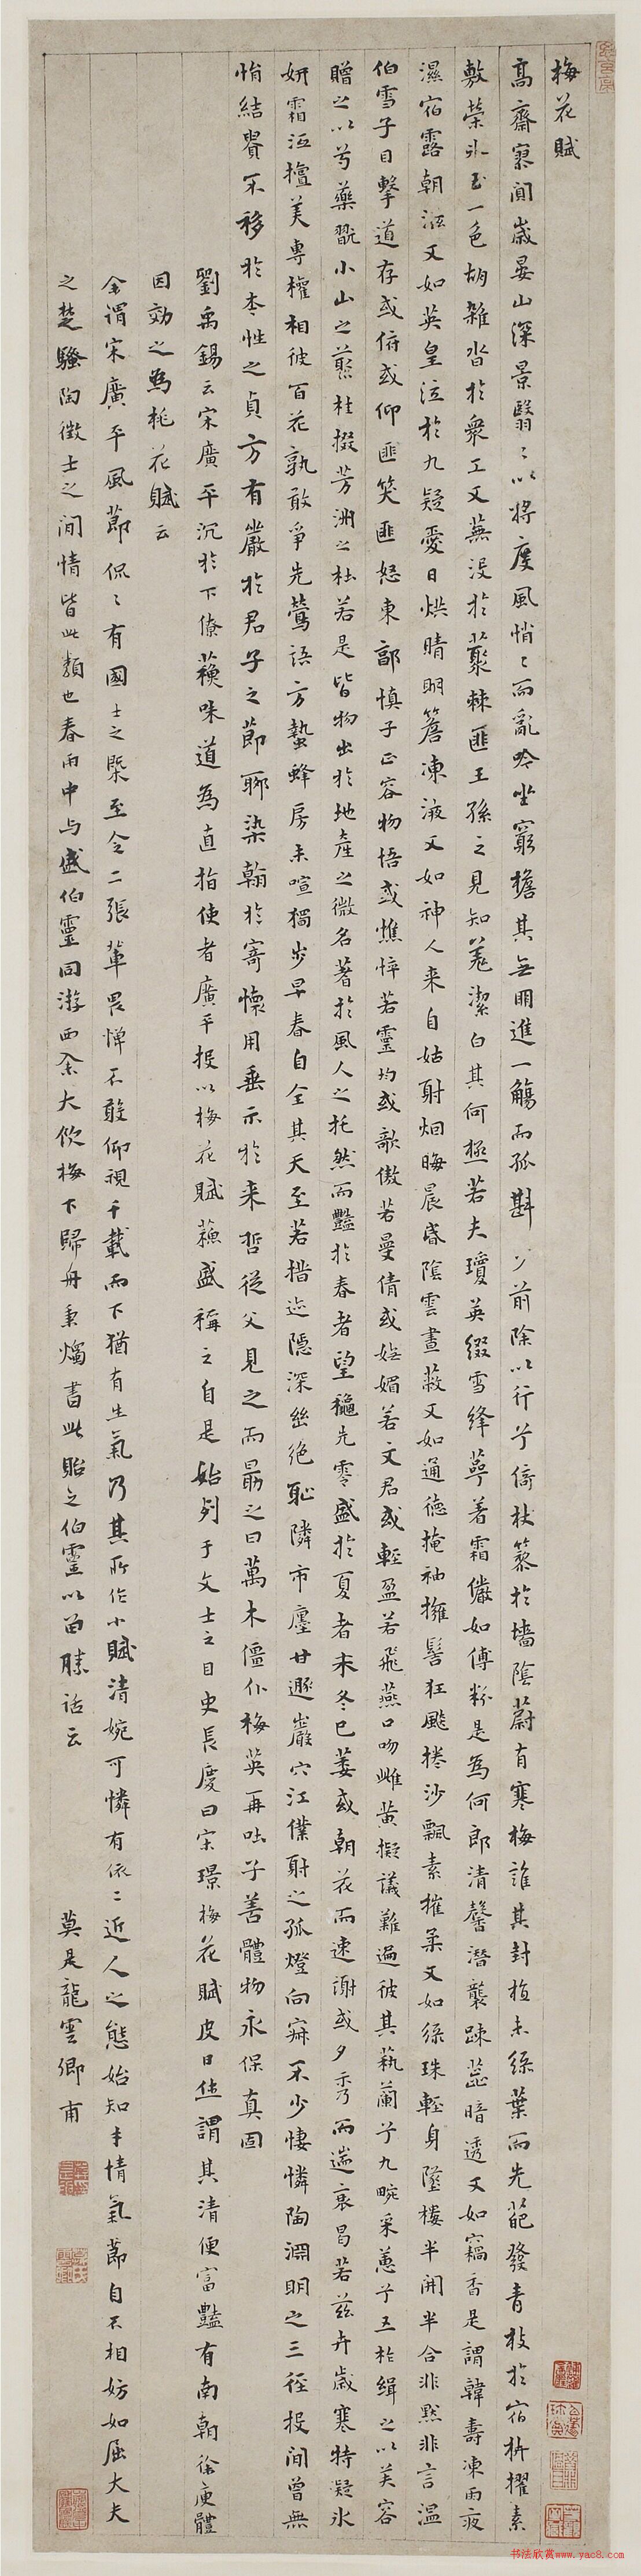 梅花賦
高齋寥閴歲晏山深景翳〻以將度風悄〻而亂吟坐窮檐其無朋進一觴而孤斟步前除以行兮倚杖藜於墻陰蔚有寒梅誰其封植未綠葉而先葩發青枝於宿枿擢素
敷榮氷玉一色胡雜沓於衆工又蕪沒於叢棘匪王孫之見知羌潔白其何極若夫瓊英綴雪絳萼著霜儼如傅粉是為何郎清馨潛襲踈蘂暗透又如竊香是謂韓壽凍雨夜
濕宿露朝泫又如英皇泣於九疑愛日烘晴明蟾凍液又如神人来自姑射烟晦晨昏陰雲晝蔽又如通德掩袖擁髻狂飈捲沙飄素摧柔又如綠珠輕身墜樓半開半合非黙非言温
伯雪子目擊道存或俯或仰匪笑匪怒東郭慎子正容物悟或憔悴若靈均或歌傲若曼倩或嫵媚若文君或輕盈若飛燕口吻雌黄擬議難遍彼其蓺蘭兮九畹采蕙兮五柞緝之以芙容
贈之以芍藥翫小山之叢桂掇芳洲之杜若是皆物出於地產之微名著於風人之托然而豔於春者望穐先零盛於夏者未冬已萎或朝花而速謝或夕秀而遄衰曷若兹卉歲寒特凝氷
妍霜沍擅美專權相彼百花孰敢爭先鶯語方蟄蜂房未喧獨步早春自全其天至若措迹隱深幽絶恥隣市廛甘遯巖穴江僕射之孤燈向寂不少悽憐陶淵明之三徑投閒曾無
悁結貴不移於本性之貞方有嚴於君子之節聊染翰於寄懷用垂示於来哲從父見之而勗之曰萬木僵仆梅英再吐子善體物永保真固
劉禹錫云宋廣平沉於下僚蘓味道為直指使者廣平投以梅花賦蘓盛稱之自是始列于文士之目史長慶曰宋璟梅花賦皮日休謂其清便富豔有南朝徐庾體
因効之為桃花賦云
余謂宋廣平風節侃〻有國士之槩至令二張輩畏憚不敢仰視千載而下猶有生氣乃其所作小賦清婉可憐有依〻近人之態始知才情氣節自不相妨如屈大夫
之楚騷陶徵士之閒情皆此類也春雨中與盛伯靈同游西佘大飲梅下歸舟秉燭書此貽之伯靈以苗勝話云
莫是龍雲卿甫
书法欣赏www.yac8.com